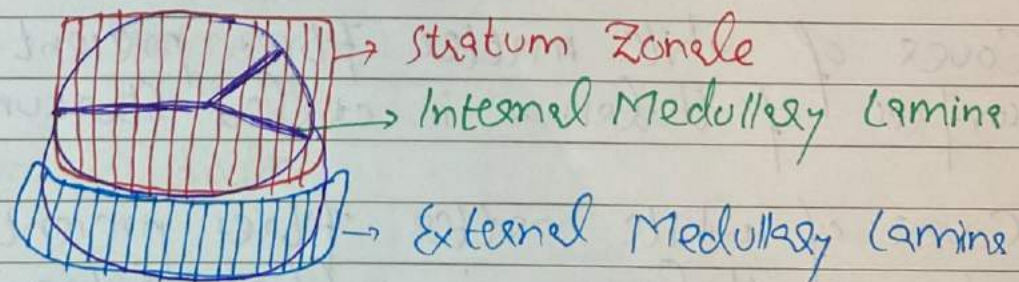 → Stratum Zonale
→ Internal Medullary Lamina
→ External Medullary Lamina